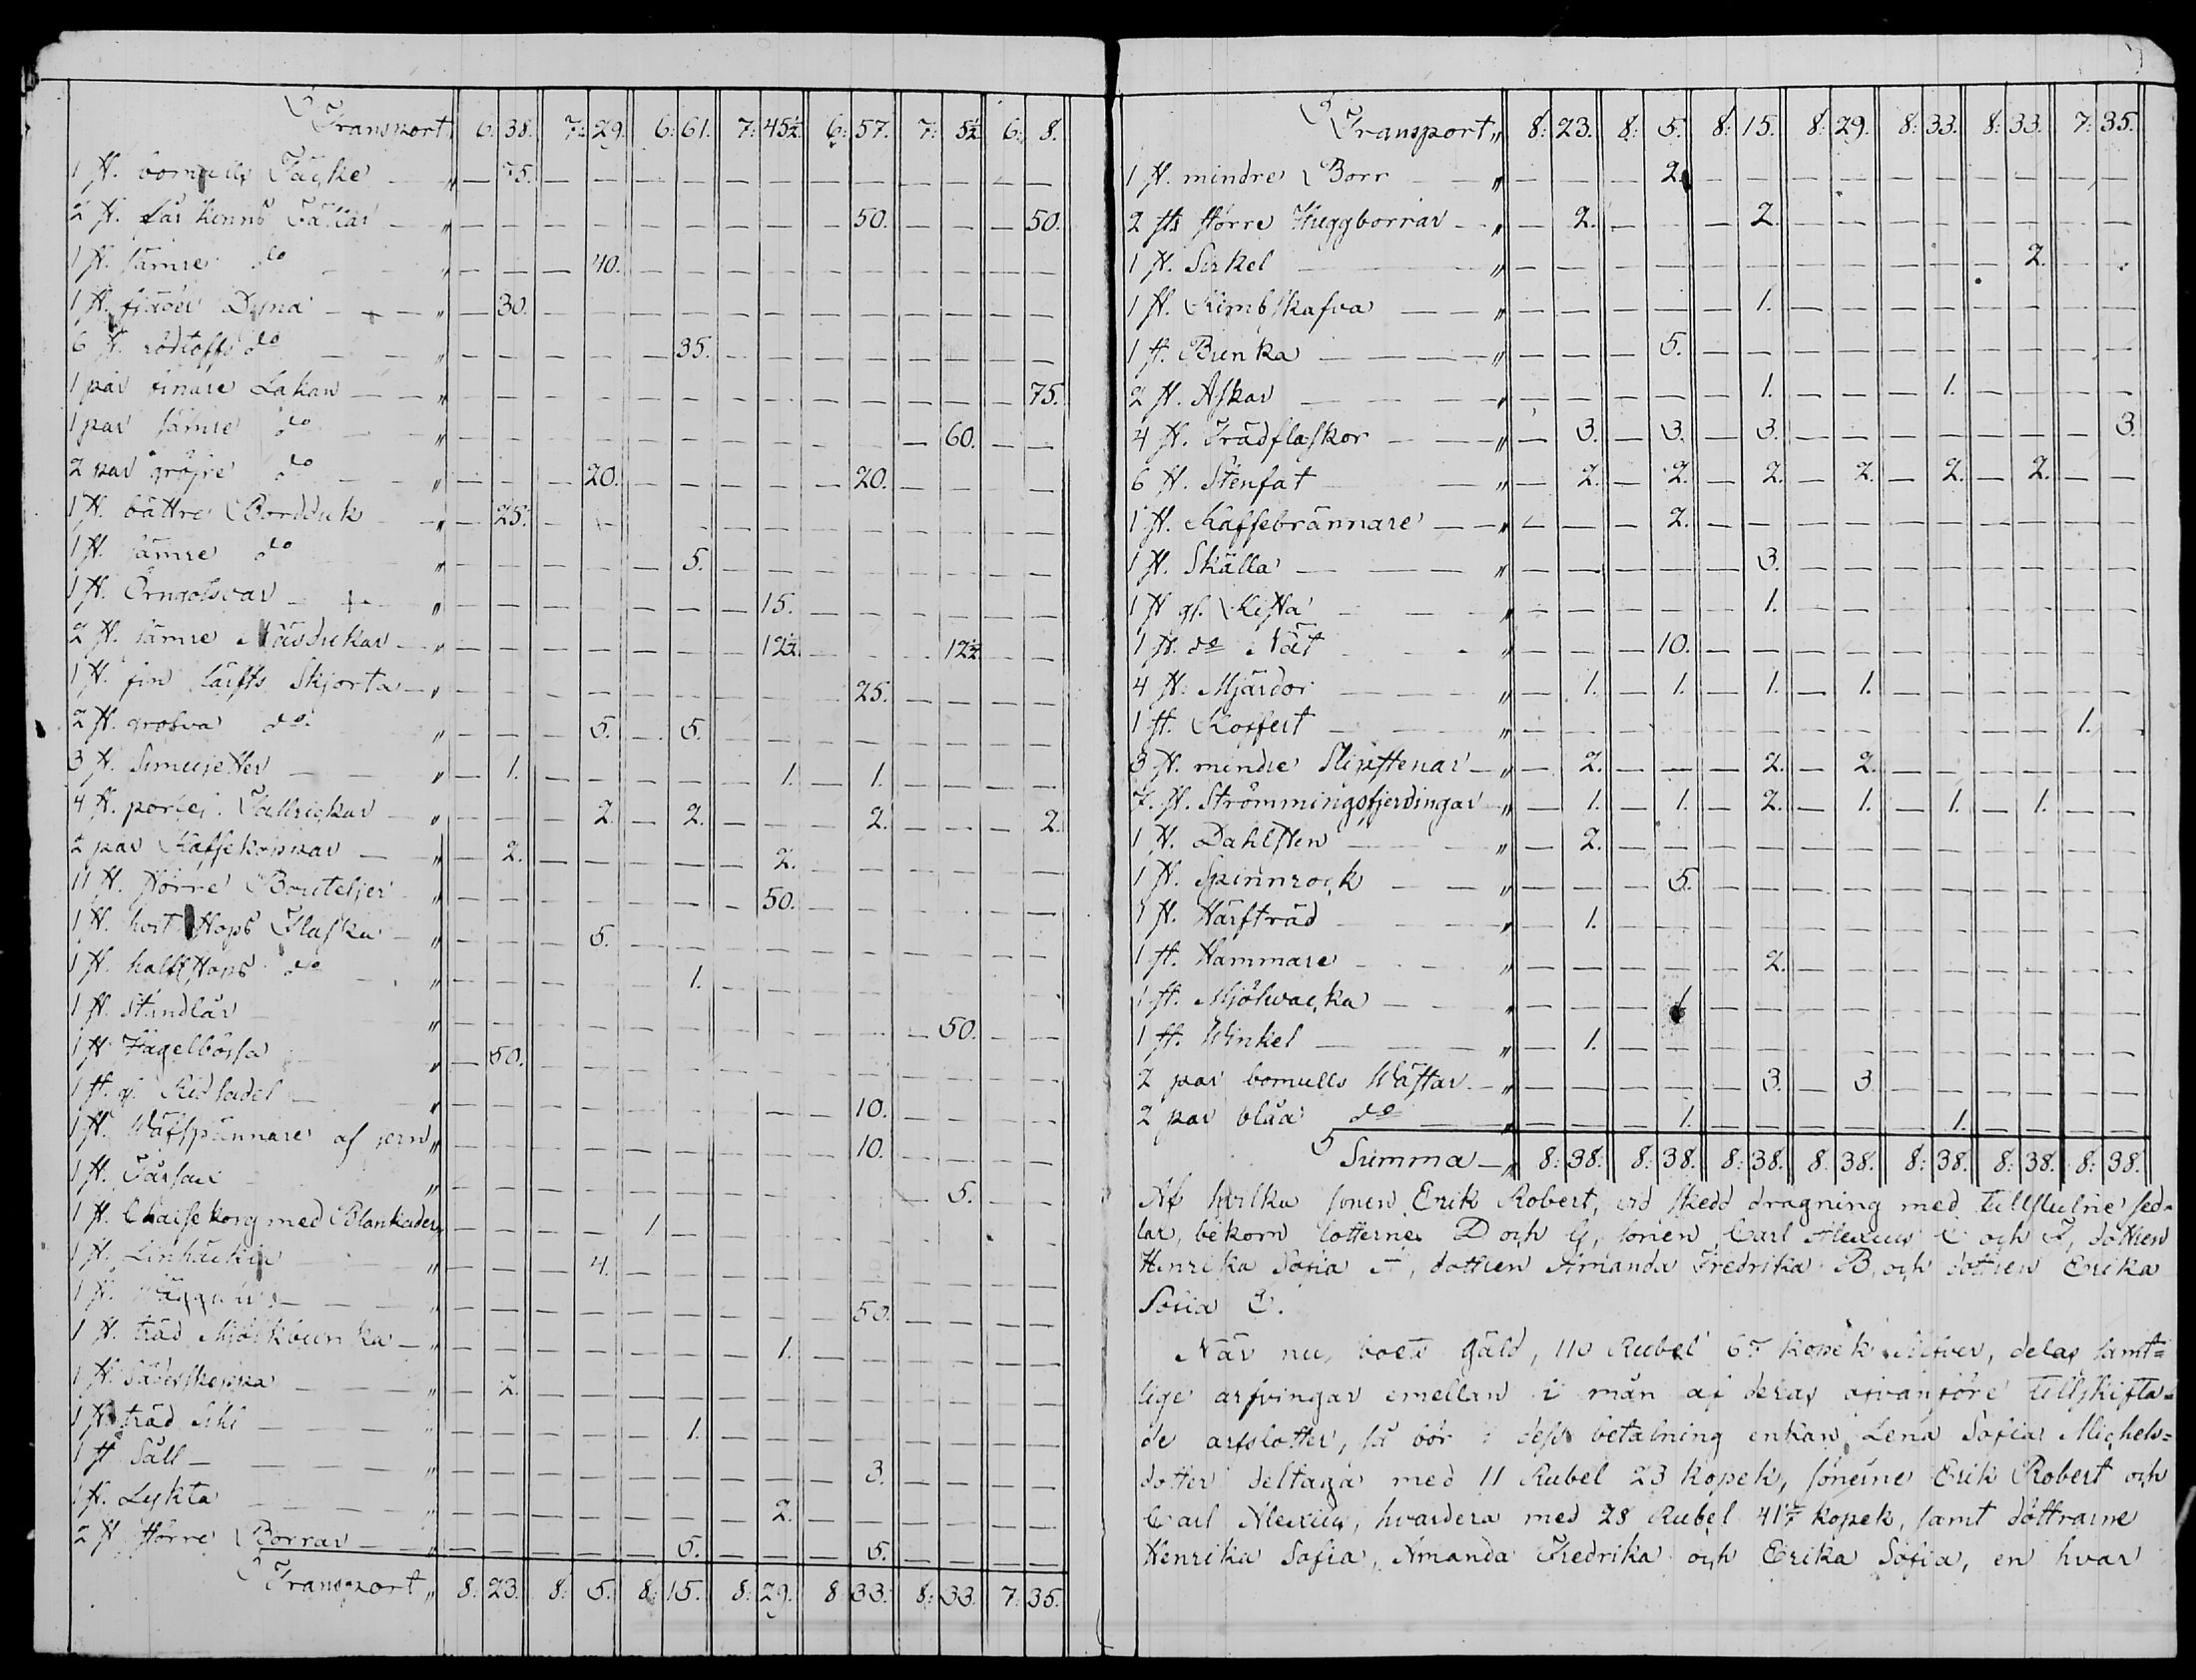 Transport „ 6: 38. 7: 29. 6: 61. 7: 45½ 6: 57. 7: 5½ 6: 8.
1 st. bomulls Täcke „ — 75.
2 st. fårskinns Fällar „ 50. 50.
1 st. sämre do „ 40.
1 st. fjäder Dyna „ 30.
6 st. do „ 35.
1 par finare Lakan „ 75.
1 par sämre do „ 60.
2 par gröfre do „ 20. 20.
1 st. bättre Bordduk „ 25.
1 st. sämre do „ 5.
1 st. Örngotsvar „ 15.
2 st. sämre Näsdukar „ 12½ 12½
1 st. fin lärfts Skjorta „ 25.
2 st. grofva do „ 5. 5.
3 st. „ 1. 1. 1.
4 st. porcel. Tallrickar „ 2. 2. 2. 2.
2 par Kaffekoppar „ 2. 2.
11 st. större Bouteljer „ 50.
1 st. Stops Flaska „ 5.
1 st. halfStops do „ 1.
1 st. „ 50.
1 st. Hagelbössa „ 50.
1 st. gl. Ridsadel „ 10.
1 st. Wäfspännare af jern „ 10.
1 st. Fårsax „ 5.
1 st. Chaise korg med „ 1
1 st. Linhäckla „ 4.
1 st. Wäggur „ 50.
1 st. träd Mjölkbunka „ 1.
1 st. Sädesskeppa „ 2.
1 st. träd „ 1.
1 st. Såll „ 3.
1 st. Lykta „ 2.
2 st. större Borrar „ 5. 5.
Transport „ 8: 23. 8: 5. 8: 15. 8: 29. 8: 33. 8: 33. 7: 35.
Transport „ 8: 23. 8: 5. 8: 15. 8: 29. 8: 33. 8: 33. 7: 35.
1 st. mindre Borr „ 2.
2 st. större Huggborrar „ 2. 2.
1 st. Sirkel „ 2.
1 st. Kimbskafva „ 1.
1 st. Bunka „ 5.
2 st. Askar „ 1. 1.
4 st. Trädflaskor „ 3. 3. 3. 3.
6 st. Stenfat „ 2. 2. 2. 2. 2. 2.
1 st. Kaffebrännare „ 2.
1 st. Skälla „ 3.
1 st. gl. Kista „ 1.
1 st. do Nät „ 10.
4 st. Mjärdor „ 1. 1. 1. 1.
1 st. Koffert „ 1.
3 st. mindre Slipstenar „ 2. 2. 2.
7. st. Strömmingsfjerdingar „ 1. 1. 2. 1. 1. 1.
1 st. Dahlsten „ 2.
1 st. Spinnrock „ 5.
1 st. Härfträd „ 1.
1 st. Hammare „ 2.
1 st. Mjölvacka „ 1
1 st. Winkel „ 1.
2 par bomulls Wästar „ 3. 3.
2 par blåa do „ 1. 1.
Summa „ 8: 38. 8: 38. 8: 38. 8: 38. 8: 38. 8: 38. 8: 38.
Af hvilka sonen Erik Robert, vid skedd dragning med tillslutne sed-
lar, bekom lotterne D och G, sonen Carl Alexius C och F, dottren
Henrika Sofia A, dottren Amanda Fredrika B, och dottren Erika
Sofia E.
När nu, boets gäld, 110 Rubel kopek Silfver, delas samt=
lige arfvingar emellan i mån af deras ofvanföre tillskifta=
de arfslotter, så bör i dess betalning enkan Lena Sofia Michels=
dotter deltaga med 11 Rubel 23 kopek, sönerne Erik Robert och
Carl Alexius, hvardera med 28 Rubel 41½ kopek, samt döttrarne
Henrika Sofia, Amanda Fredrika och Erika Sofia, en hvar